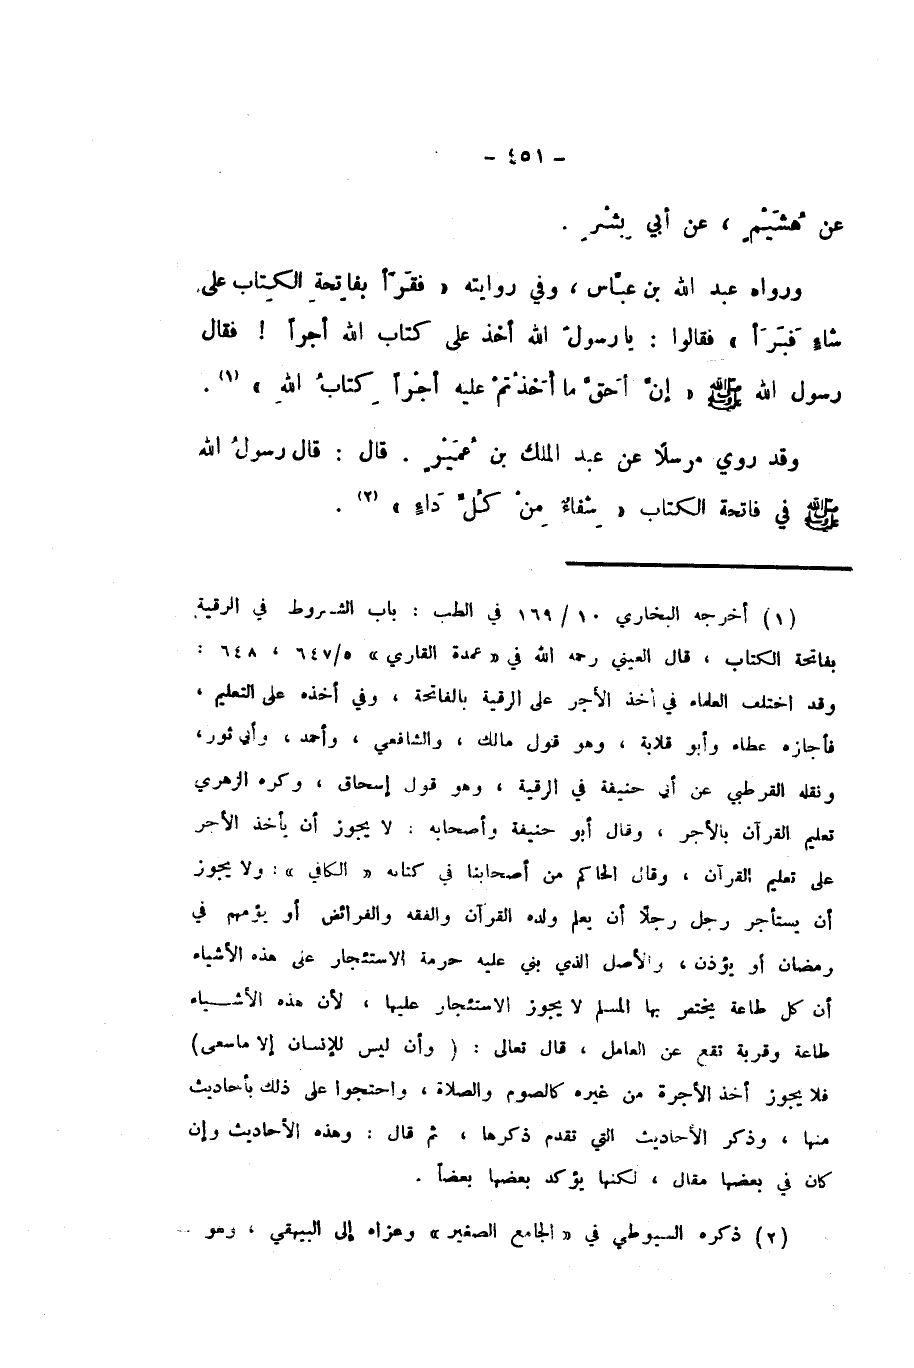 - ٤٥١ -
عن هُشَيْمٍ ، عن أبي بِشْرٍ .
ورواه عبد الله بن عبّاس ، وفي روايته « فقَرَأَ بفاتِحةِ الكِتاب على
شاءٍ فَبَرَأَ » فقالوا : يا رسولَ الله أخذ على كتاب الله أجراً ! فقال
رسول الله ﷺ « إنَّ أَحَقَّ ما أَخَذْتُمْ عليه أجْراً كِتابُ اللهِ » (١) .
وقد روي مرسلًا عن عبد الملك بن عُمَيْرٍ . قال : قال رسولُ الله
ﷺ في فاتحة الكتاب « شِفاءٌ مِنْ كُلِّ دَاءٍ » (٢) .
(١) أخرجه البخاري ١٠ / ١٦٩ في الطب : باب الشروط في الرقية
بفاتحة الكتاب ، قال العيني رحمه الله في « عمدة القاري » ٥/٦٤٧ ، ٦٤٨ :
وقد اختلف العلماء في أخذ الأجر على الرقية بالفاتحة ، وفي أخذه على التعليم ،
فأجازه عطاء وأبو قلابة ، وهو قول مالك ، والشافعي ، وأحمد ، وأبي ثور ،
ونقله القرطبي عن أبي حنيفة في الرقية ، وهو قول إسحاق ، وكره الزهري
تعليم القرآن بالأجر ، وقال أبو حنيفة وأصحابه : لا يجوز أن يأخذ الأجر
على تعليم القرآن ، وقال الحاكم من أصحابنا في كتابه « الكافي » : ولا يجوز
أن يستأجر رجل رجلًا أن يعلم ولده القرآن والفقه والفرائض أو يؤمهم في
رمضان أو يؤذن ، والأصل الذي بني عليه حرمة الاستئجار على هذه الأشياء
أن كل طاعة يختص بها المسلم لا يجوز الاستئجار عليها ، لأن هذه الأشـــياء
طاعة وقربة تقع عن العامل ، قال تعالى : ( وأن ليس للإنسان إلا ماسعى)
فلا يجوز أخذ الأجرة من غيره كالصوم والصلاة ، واحتجوا على ذلك بأحاديث
منها ، وذكر الأحاديث التي تقدم ذكرها ، ثم قال : وهذه الأحاديث وإن
كان في بعضها مقال ، لكنها يؤكد بعضها بعضاً .
(٢) ذكره السيوطي في « الجامع الصغير » وعزاه إلى البيهقي ، وهو